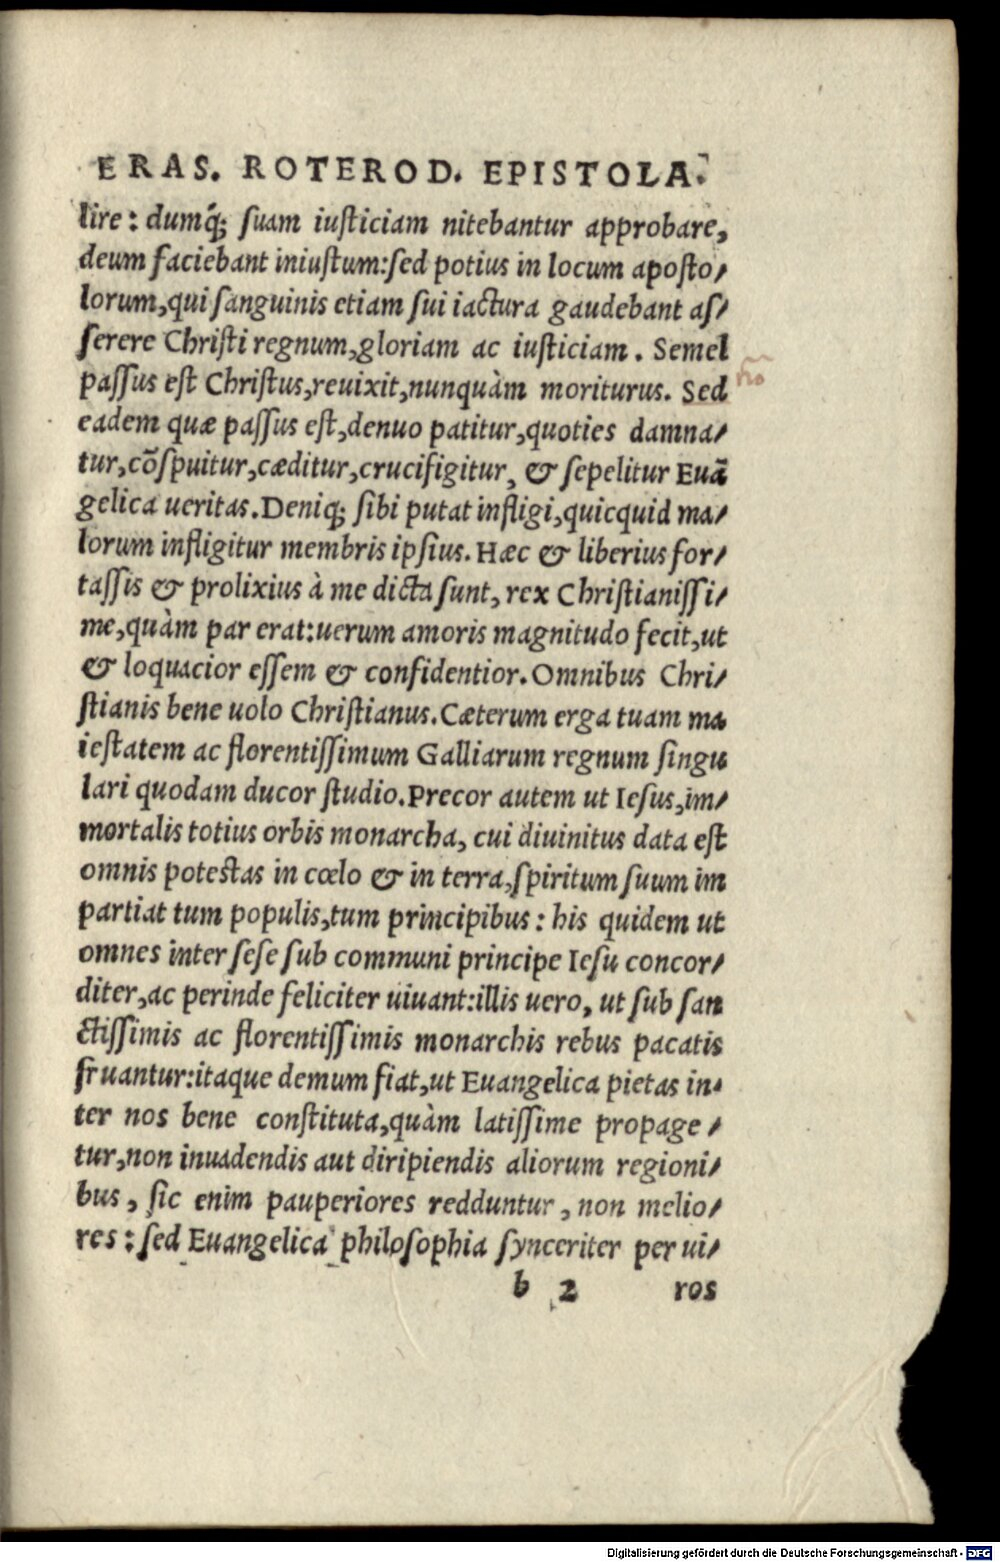 ERAS. ROTEROD. EPISTOLA.
lire: dumq́; ſuam iuſticiam nitebantur approbare,
deum faciebant iniuſtum:ſed potius in locum apoſto/
lorum,qui ſanguinis etiam ſui iactura gaudebant aſ/
ſerere Chriſti regnum,gloriam ac iuſticiam. Semel
paſſus eſt Chriſtus,reuixit,nunquàm moriturus. Sed
eadem quæ paſſus eſt,denuo patitur,quoties damna/
tur,cōſpuitur,cæditur,crucifigitur, & ſepelitur Euā
gelica ueritas.Deniq; ſibi putat infligi,quicquid ma/
lorum infligitur membris ipſius. Hæc & liberius for/
taſſis & prolixius à me dicta ſunt, rex Chriſtianiſſi/
me,quàm par erat:uerum amoris magnitudo fecit,ut
& loquacior eſſem & confidentior. Omnibus Chri/
ſtianis bene uolo Chriſtianus.Cæterum erga tuam ma
ieſtatem ac florentiſſimum Galliarum regnum ſingu
lari quodam ducor ſtudio.Precor autem ut Ieſus,im/
mortalis totius orbis monarcha, cui diuinitus data eſt
omnis poteſtas in cœlo & in terra,ſpiritum ſuum im
partiat tum populis,tum principibus: his quidem ut
omnes inter ſeſe ſub communi principe Ieſu concor/
diter,ac perinde feliciter uiuant:illis uero, ut ſub ſan
ctiſſimis ac florentiſſimis monarchis rebus pacatis
fruantur:itaque demum fiat,ut Euangelica pietas in/
ter nos bene conſtituta,quàm latiſſime propage/
tur,non inuadendis aut diripiendis aliorum regioni/
bus, ſic enim pauperiores redduntur, non melio/
res: ſed Euangelica philoſophia ſynceriter per ui/
b 2 ros
Digitalisierung gefördert durch die Deutsche Forschungsgemeinschaft - DFG